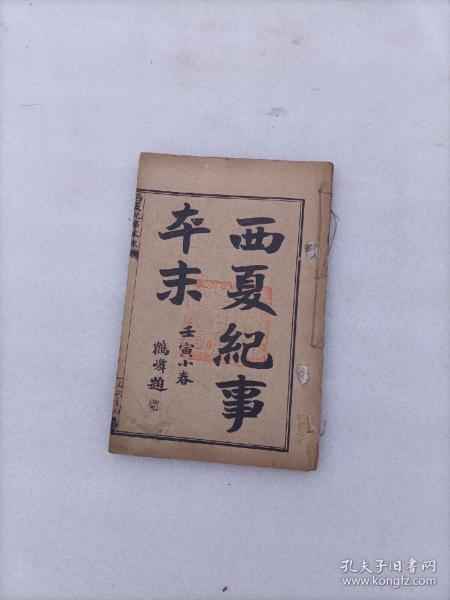 西夏紀事
本末
壬寅小春
鶴峰題
西夏紀事本末
孔夫子旧书网
www.kongfz.com